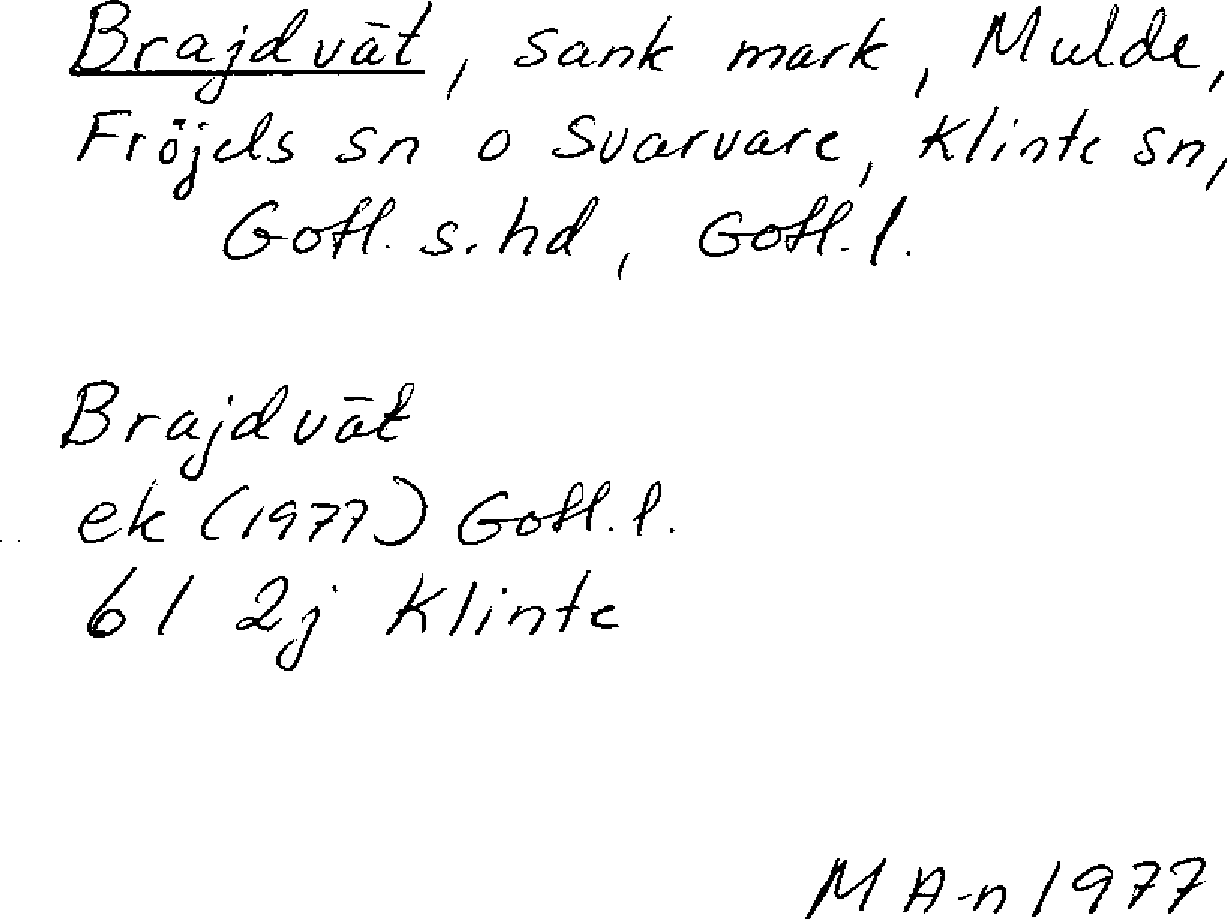 Brajdvät, sank mark, Mulde,
Fröjels sn o Svarvare, Klinte sn,
Gotl. s. hd, Gotl. l.
Brajdvät
ek (1977) Gotl. l.
6 I 2j Klinte
M A-n 1977